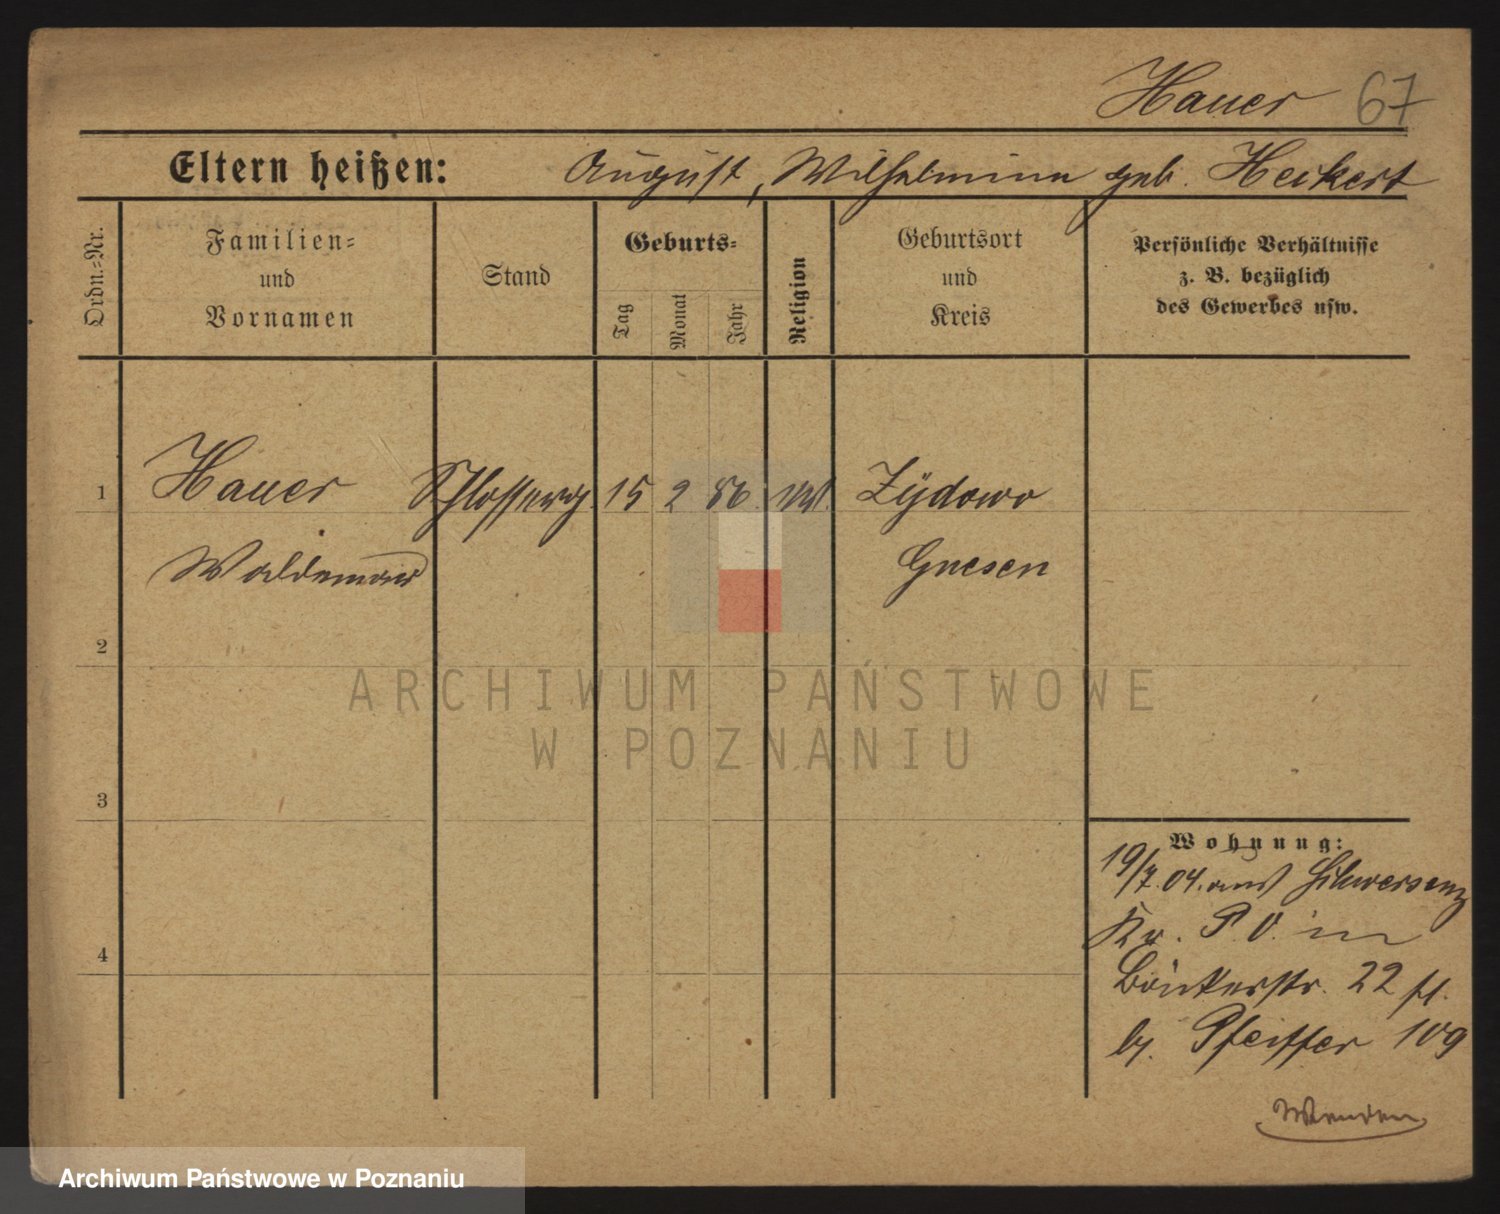 Hauer 67
Eltern heißen: August, Wilhelmine geb. Heikert
Ordn.-Nr.
Familien-
und
Vornamen
Stand
Geburts-
Tag
Monat
Jahr
Religion
Geburtsort
und
Kreis
Persönliche Verhältnisse
z. B. bezüglich
des Gewerbes usw.
1 Hauer Schlosserg. 15 2 86. Zydowo
Waldemar Gnesen
2
3
4
Wohnung:
19/7. 04. aus Schwersenz
Kr. P. O. in
Bäckerstr. 22
b. Pfeiffer 109
Wenden
ARCHIWUM PAŃSTWOWE
W POZNANIU
Archiwum Państwowe w Poznaniu